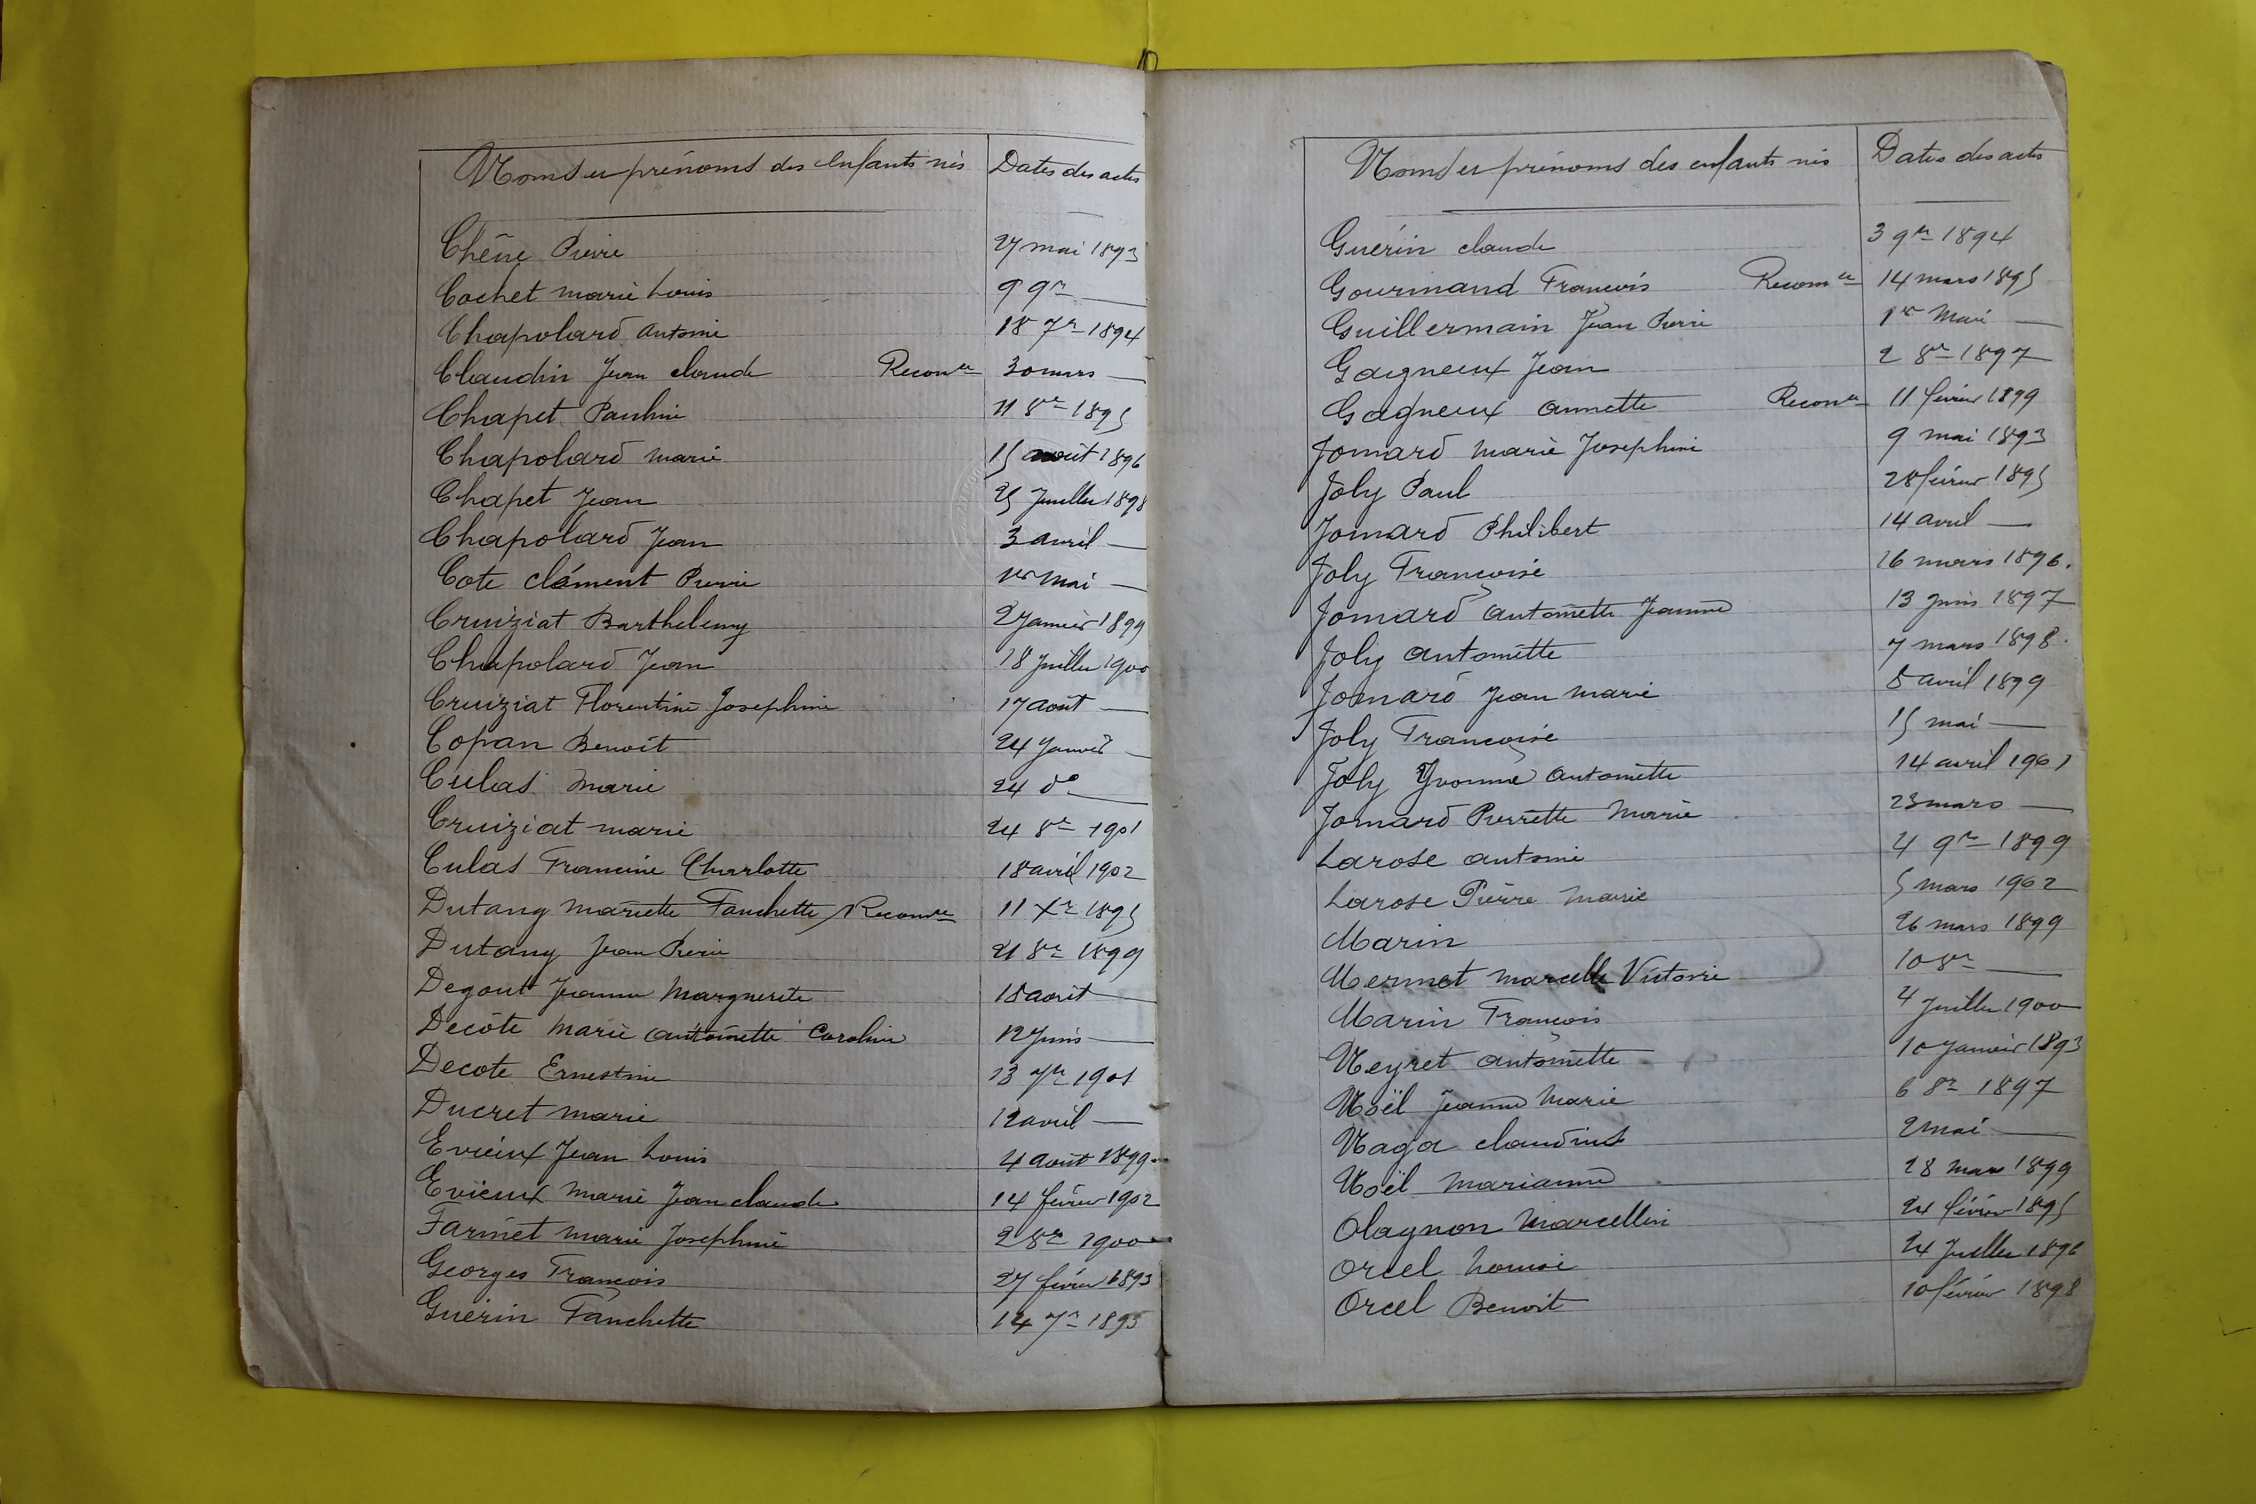 Noms et prénoms des enfants nés Dates des actes
Chêne Pierre 27 mai 1893
Cochet marie Louis 9 9re —
Chapolard antoine 18 7re 1894
Claudin Jean claude Reconce 30 mars —
Chapet Pauline 11 8re 1895
Chapolard marie 15 août 1896
Chapet Jean 25 Juillet 1898
Chapolard Jean 3 avril —
Cote clément Pierre 1er mai —
Cruiziat Barthelemy 2 Janvier 1899
Chapolard Jean 18 Juillet 1900
Cruiziat Florentine Josephine 17 août —
Copan Benoît 24 Janvier —
Culas Marie 24 do —
Cruiziat marie 24 8re 1901
Culas Francine Charlotte 18 avril 1902
Dutang Mariette Fanchette Reconce 11 Xre 1895
Dutang Jean Pierre 21 8re 1899
Degout Jeanne Marguerite 18 août —
Decôte Marie antoinette Caroline 12 Juin —
Decote Ernestine 13 7re 1901
Ducret marie 12 avril —
Evieux Jean Louis 4 août 1899
Evieux Marie Jean claude 14 février 1902
Farinet marie Josephine 2 8re 1900
Georges François 27 février 1893
Guérin Fanchette 14 7re 1893
Noms et prénoms des enfants nés Dates des actes
Guérin claude 3 9re 1894
Gourmand François Reconce 14 mars 1895
Guillermain Jean Pierre 1er Mai —
Gaigneux Jean 2 8re 1897
Gagneux annette Reconce 11 février 1899
Jomard Marie Josephine 9 mai 1893
Joly Paul 28 février 1895
Jomard Philibert 14 avril —
Joly Françoise 16 mars 1896.
Jomard antoinette Jeanne 13 juin 1897
Joly antoinette 7 mars 1898.
Jomard Jean marie 5 avril 1899
Joly Françoise 15 mai —
Joly Yvonne antoinette 14 avril 1901
Jomard Pierrette Marie 23 mars —
Larose antoine 4 9re 1899
Larose Pierre Marie 5 mars 1902
Marin 26 mars 1899
Mermet Marcelle Victoire 10 8re —
Marin François 4 Juillet 1900
Neyret antoinette 10 Janvier 1893
Noël Jeanne Marie 6 8re 1897
Naga claudius 2 mai —
Noël Marianne 28 mars 1899
Olagnon Marcellin 24 février 1895
Orcel Louise 24 Juillet 1896
Orcel Benoit 10 février 1898